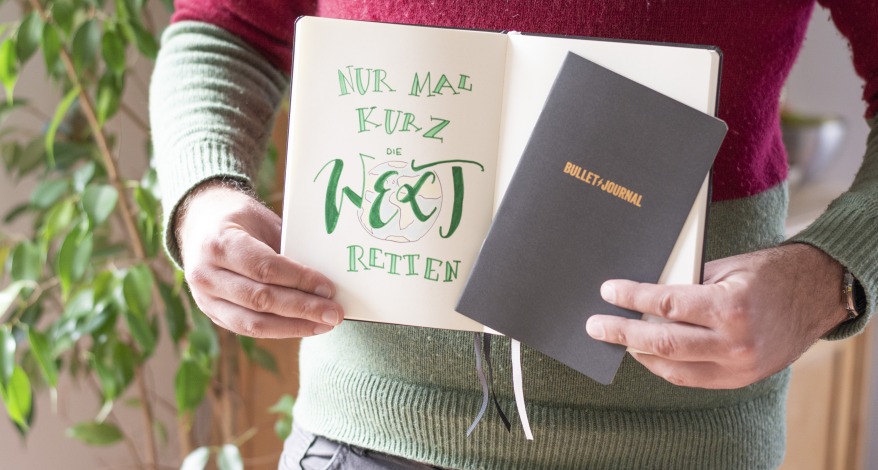 NUR MAL
KURZ
DIE
WELT
RETTEN
BULLET JOURNAL